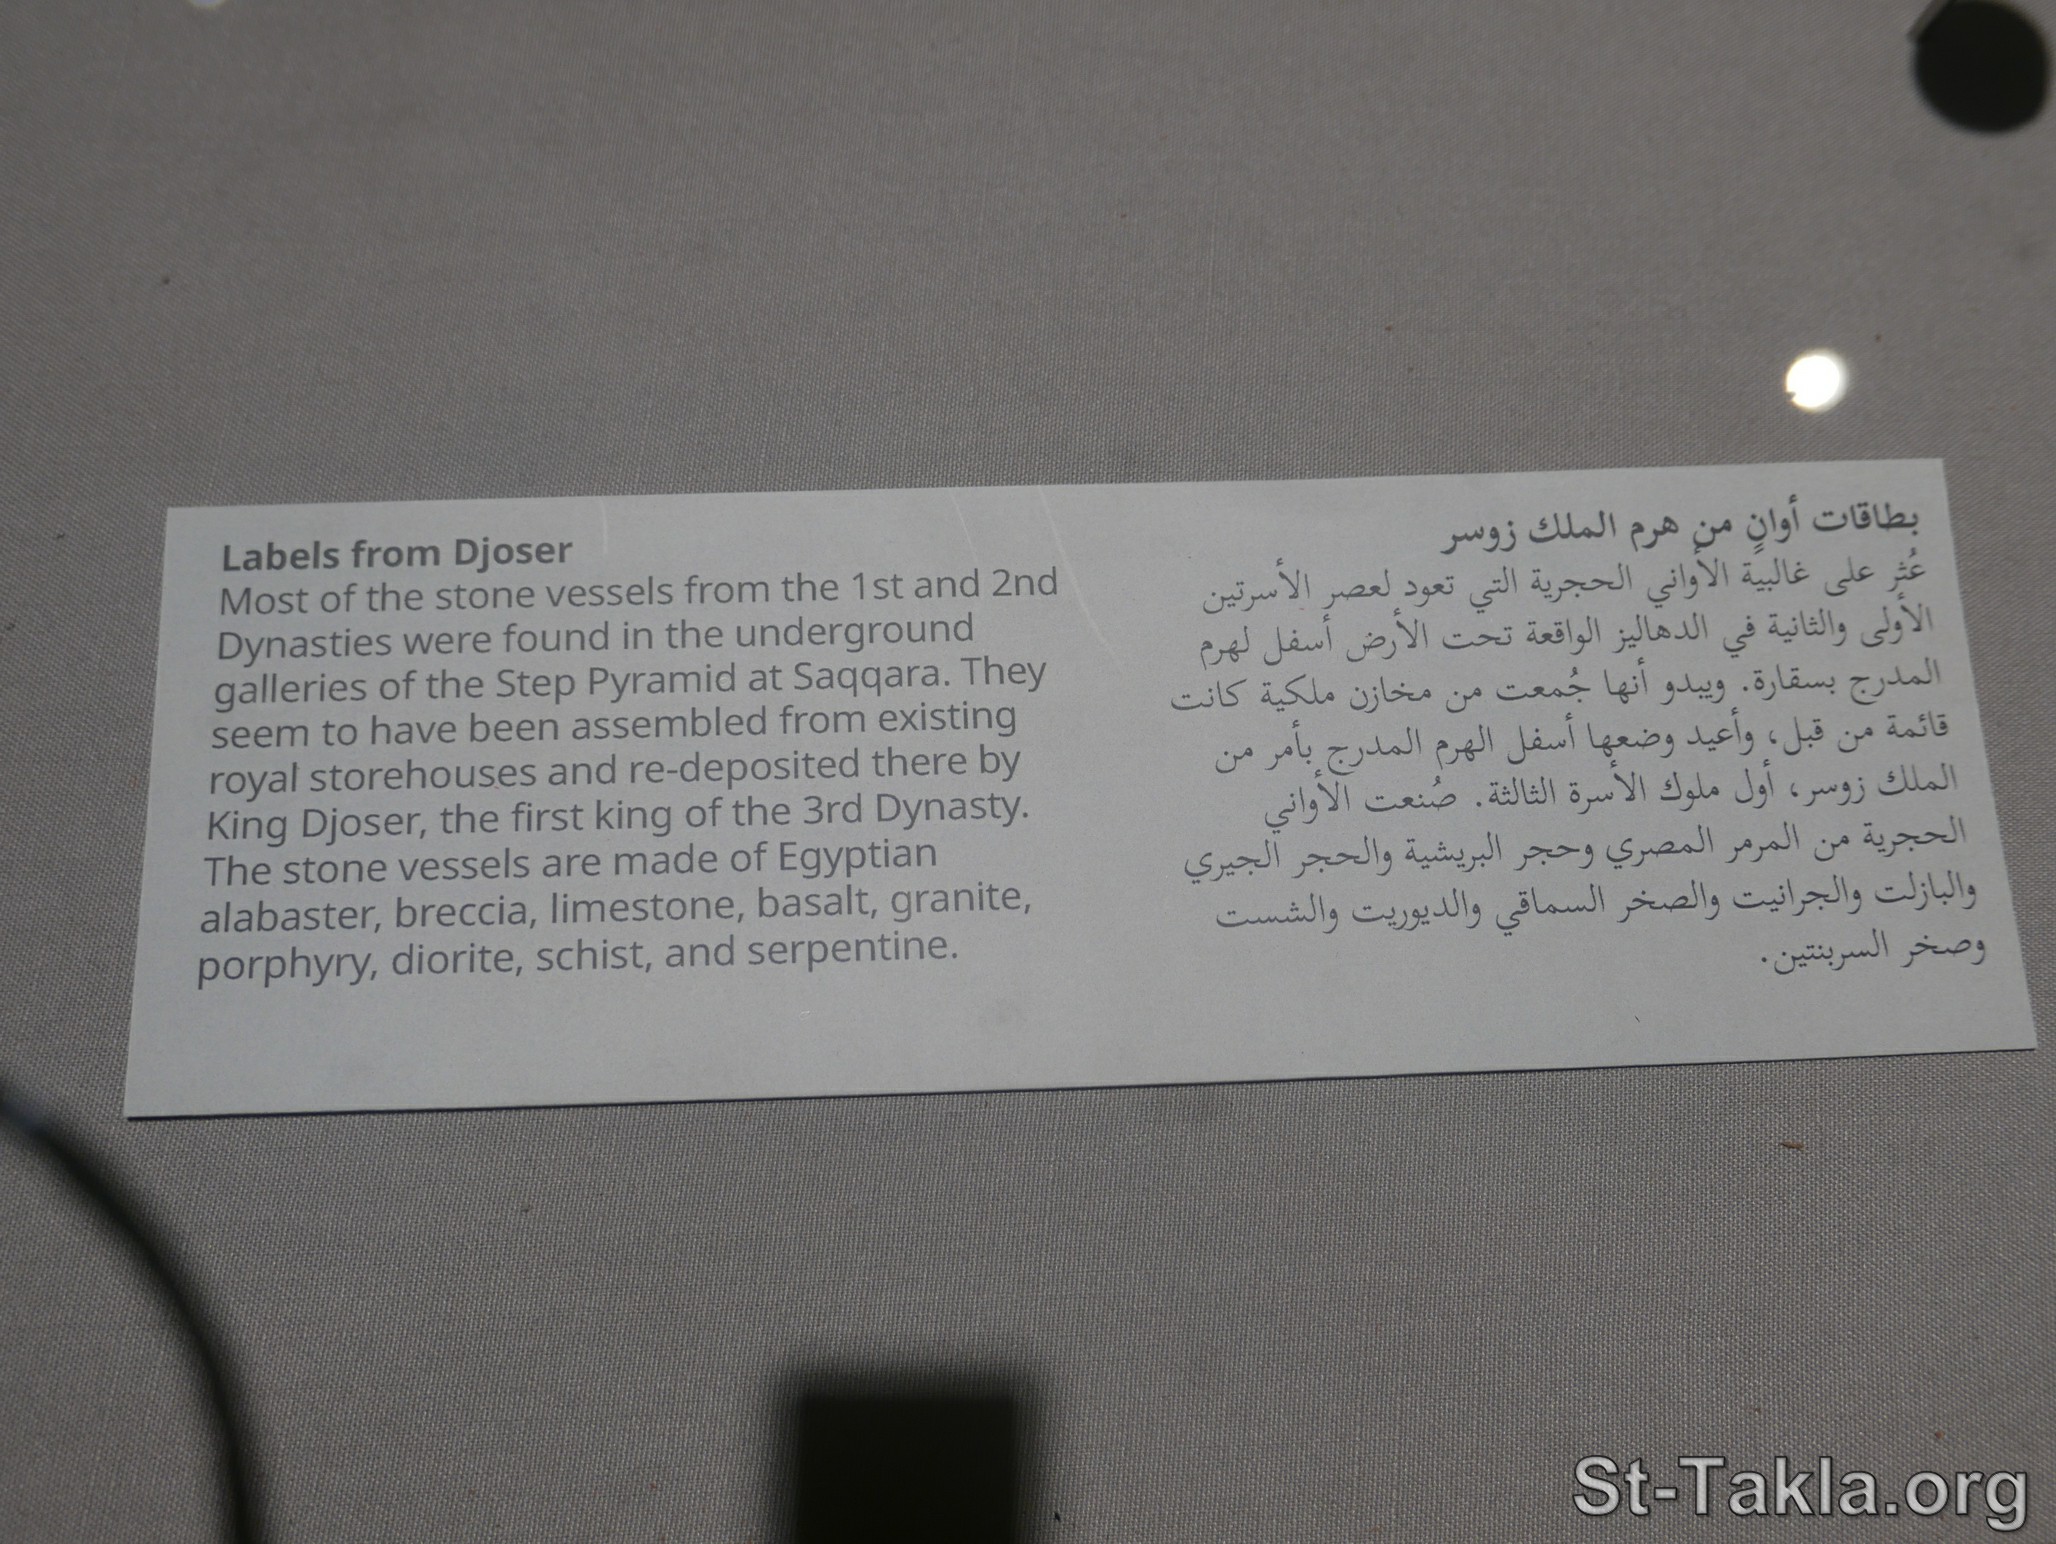 Labels from Djoser
Most of the stone vessels from the 1st and 2nd
Dynasties were found in the underground
galleries of the Step Pyramid at Saqqara. They
seem to have been assembled from existing
royal storehouses and re-deposited there by
King Djoser, the first king of the 3rd Dynasty.
The stone vessels are made of Egyptian
alabaster, breccia, limestone, basalt, granite,
porphyry, diorite, schist, and serpentine.
بطاقات أوانٍ من هرم الملك زوسر
عُثر على غالبية الأواني الحجرية التي تعود لعصر الأسرتين
الأولى والثانية في الدهاليز الواقعة تحت الأرض أسفل لهرم
المدرج بسقارة. ويبدو أنها جُمعت من مخازن ملكية كانت
قائمة من قبل، وأعيد وضعها أسفل الهرم المدرج بأمر من
الملك زوسر، أول ملوك الأسرة الثالثة. صُنعت الأواني
الحجرية من المرمر المصري وحجر البريشية والحجر الجيري
والبازلت والجرانيت والصخر السماقي والديوريت والشست
وصخر السربنتين.
St-Takla.org